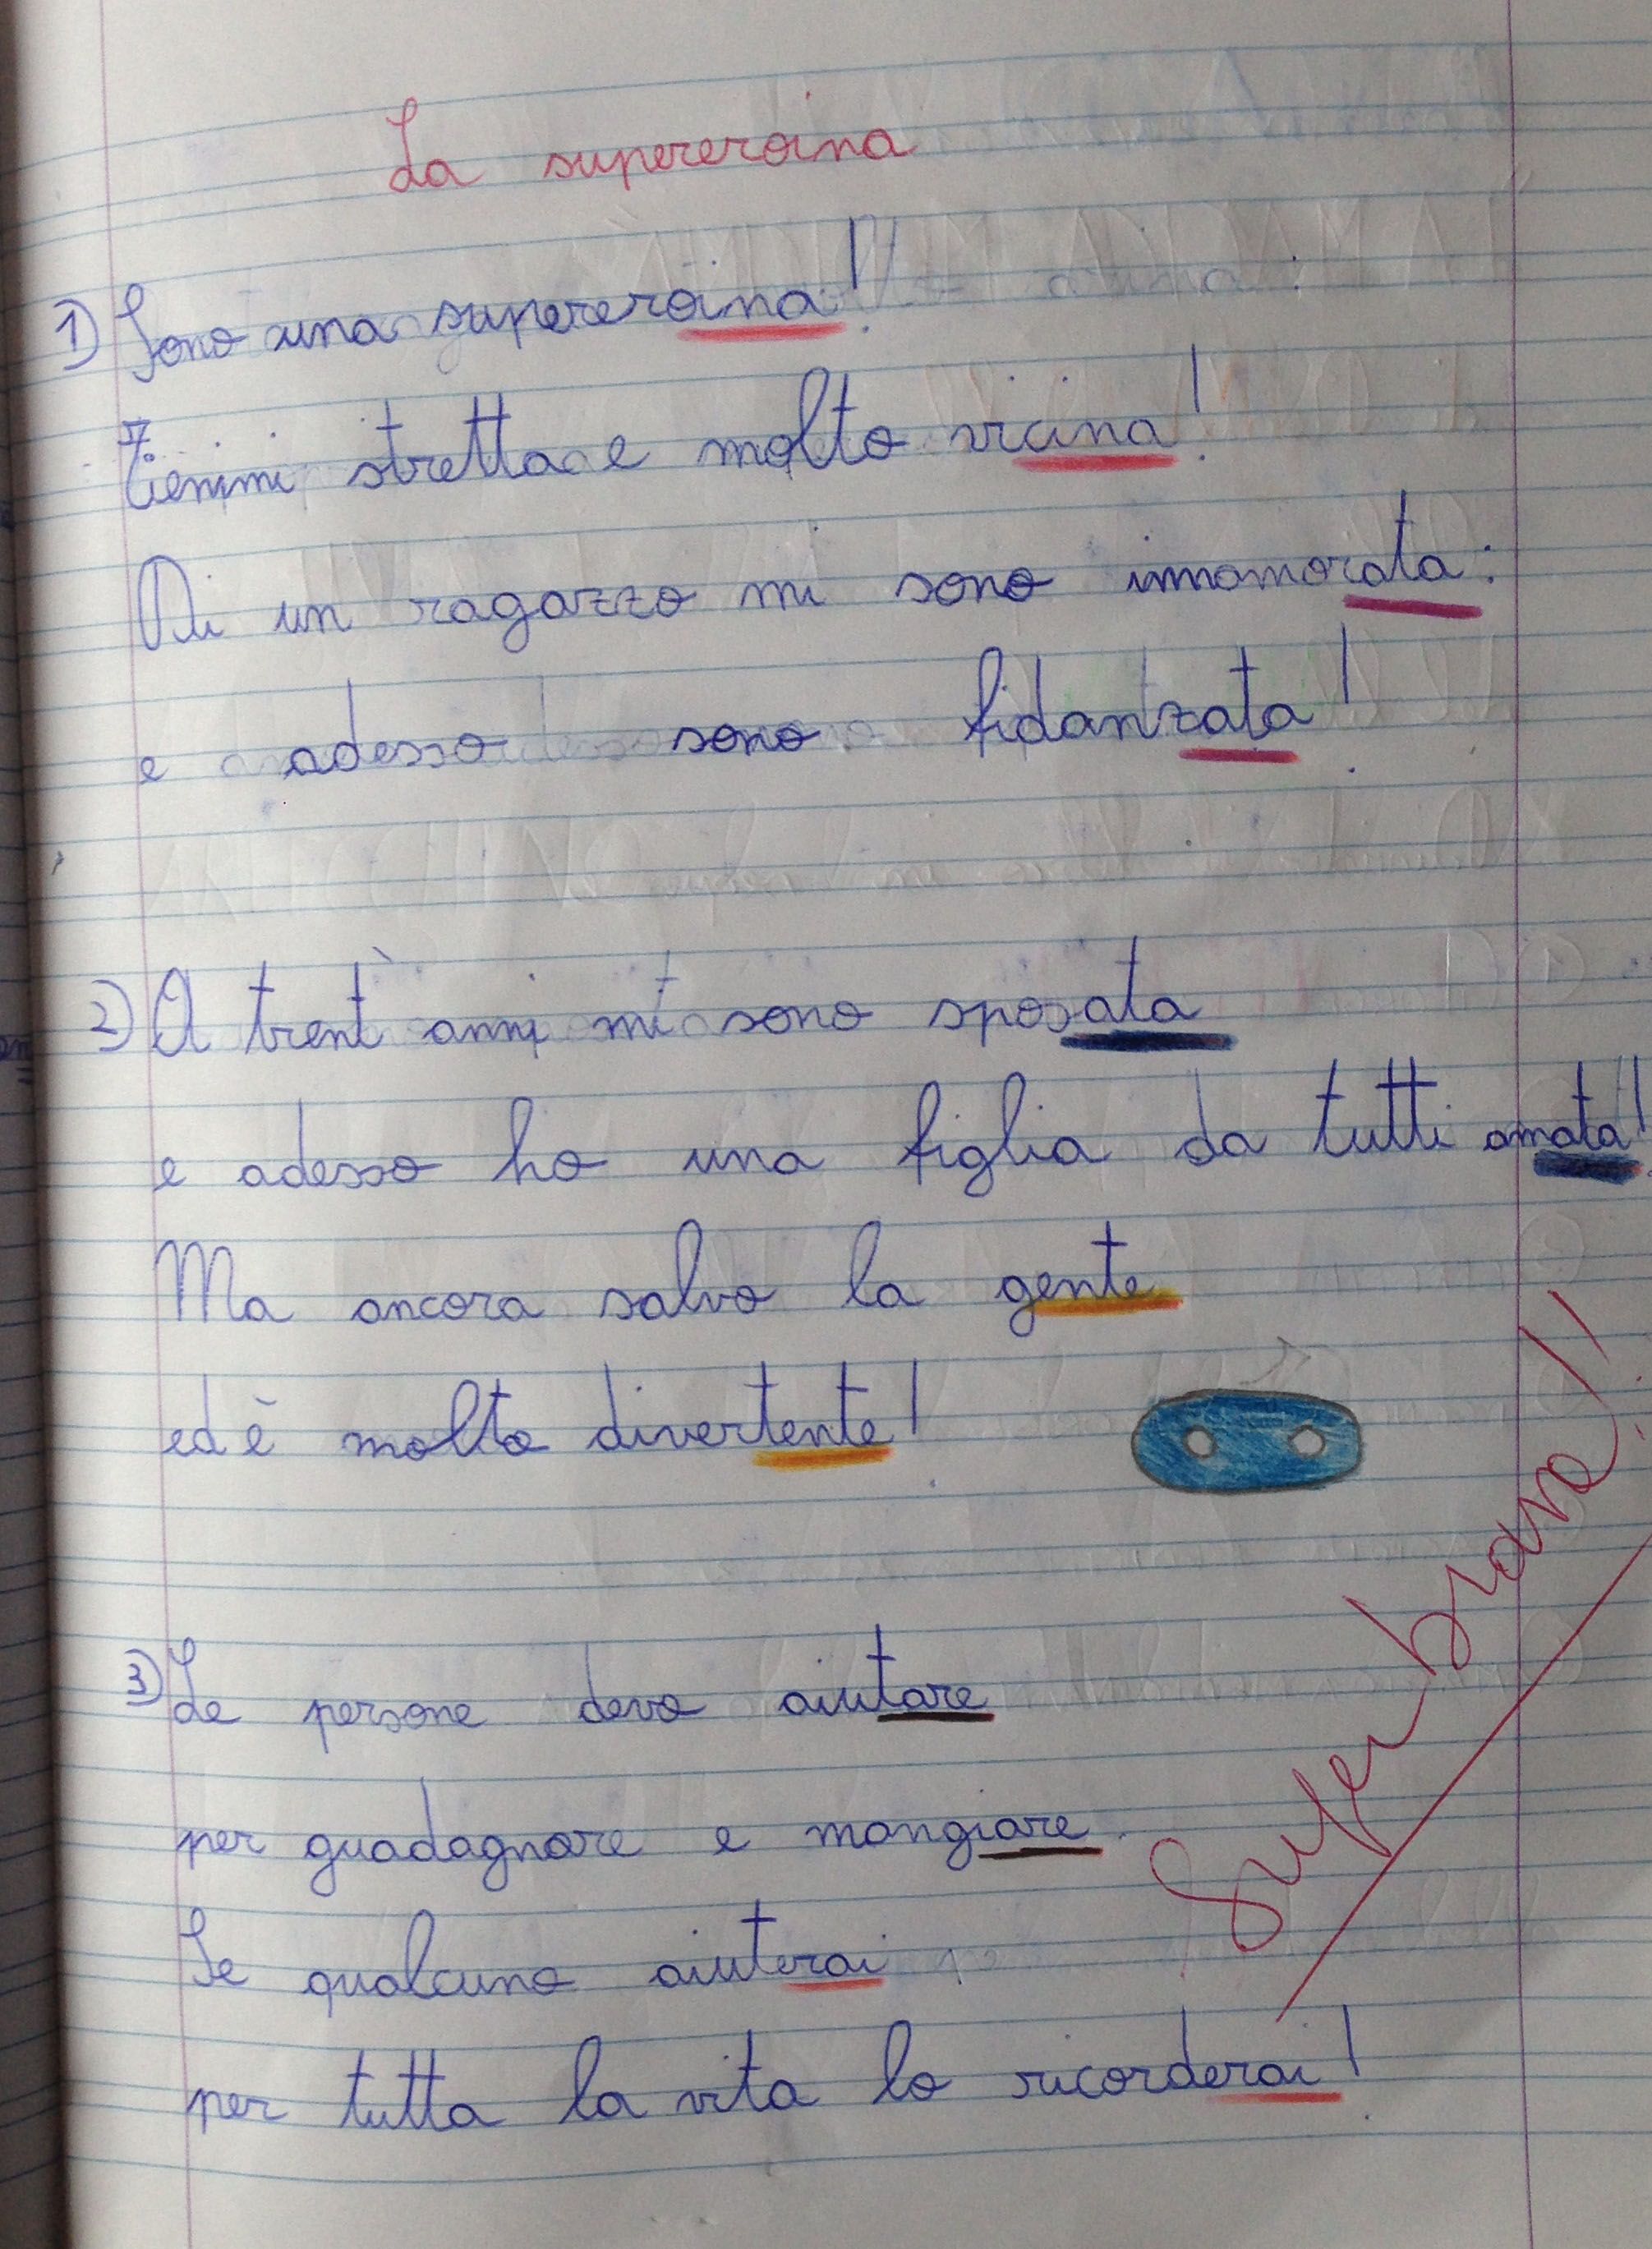 La supereroina
1) Sono una supereroina!
Tienimi stretta e molto vicina!
Di un ragazzo mi sono innamorata:
e adesso sono fidanzata!
2) A trent' anni mi sono sposata
e adesso ho una figlia da tutti amata!
Ma ancora salvo la gente
ed è molto divertente!
3) Le persone devo aiutare
per guadagnare e mangiare.
Se qualcuno aiuterai
per tutta la vita lo ricorderai!
Super brave!!